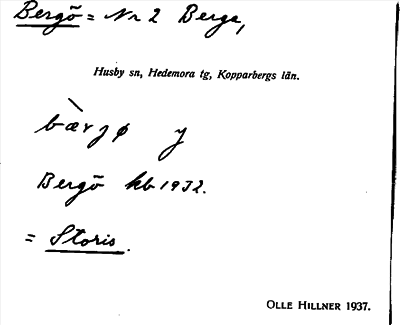 Bergö = Nr 2 Berga,
Husby sn, Hedemora tg, Kopparbergs län.
bàrgø y
Bergö kb 1932.
= Storis.
OLLE HILLNER 1937.